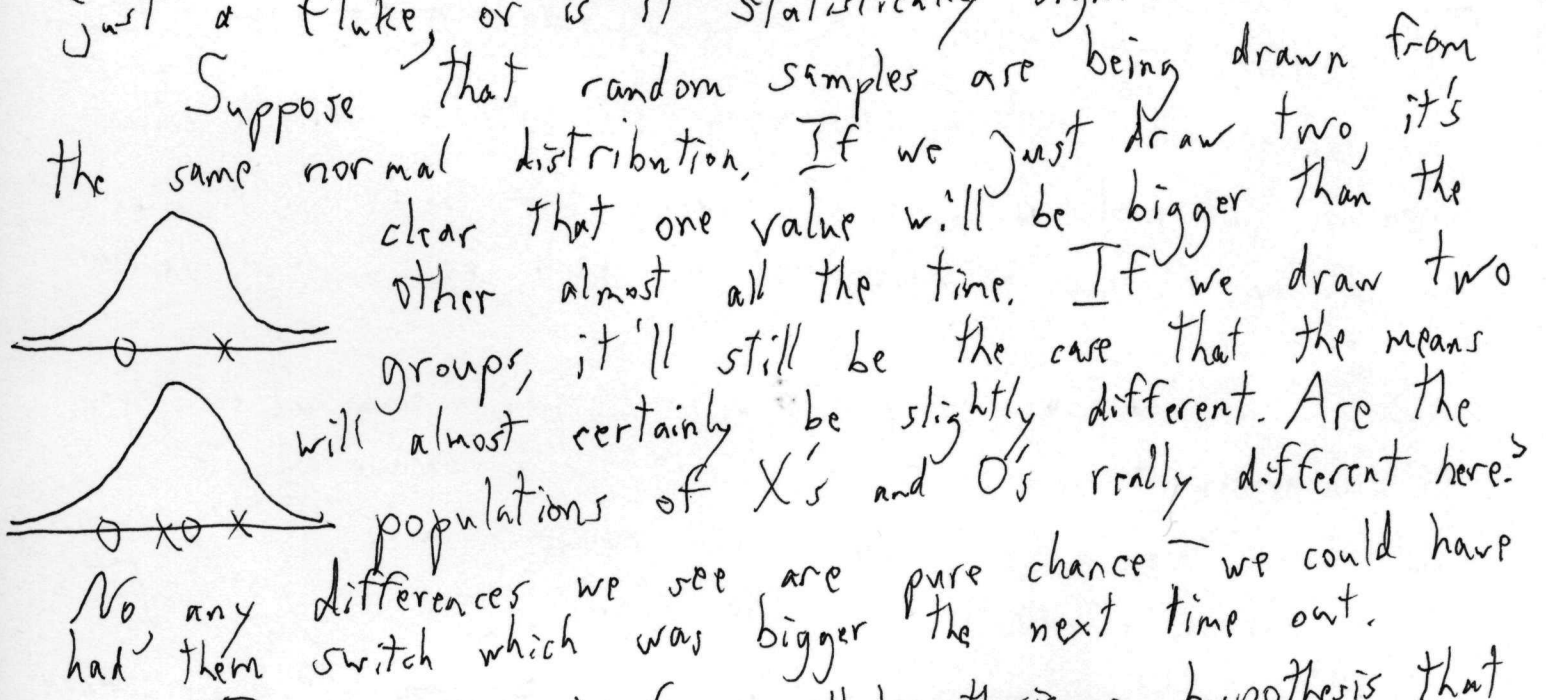 just a fluke, or is it statistically
Suppose that random samples are being drawn from
the same normal distribution. If we just draw two, it's
clear that one value will be bigger than the
other almost all the time. If we draw two
groups, it'll still be the case that the means
will almost certainly be slightly different. Are the
populations of X's and O's really different here?
No, any differences we see are pure chance – we could have
had them switch which was bigger the next time out.
hypothesis that